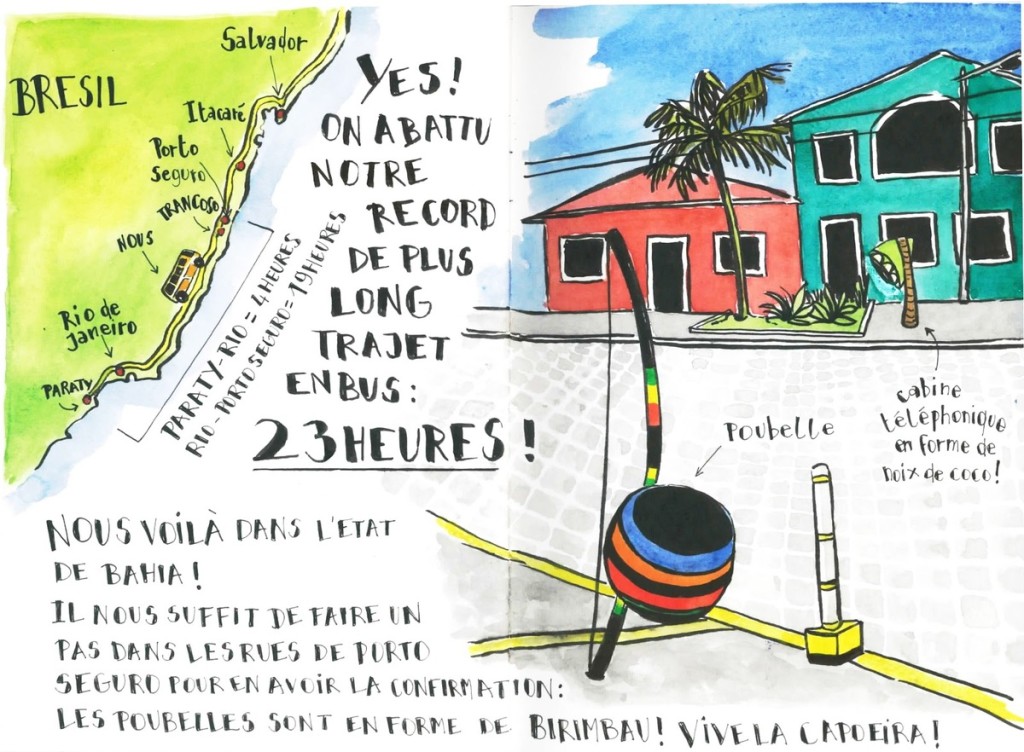 BRESIL
Salvador
Itacaré
Porto
Seguro
TRANCOSO
NOUS
Rio de
Janeiro
PARATY
PARATY-RIO = 4 HEURES
RIO-PORTO SEGURO = 19 HEURES
YES!
ON A BATTU
NOTRE
RECORD
DE PLUS
LONG
TRAJET
EN BUS :
23 HEURES !
POUBELLE
cabine
téléphonique
en forme de
noix de coco!
NOUS VOILÀ DANS L'ETAT
DE BAHIA !
IL NOUS SUFFIT DE FAIRE UN
PAS DANS LES RUES DE PORTO
SEGURO POUR EN AVOIR LA CONFIRMATION :
LES POUBELLES SONT EN FORME DE BIRIMBAU! VIVE LA CAPOEIRA!